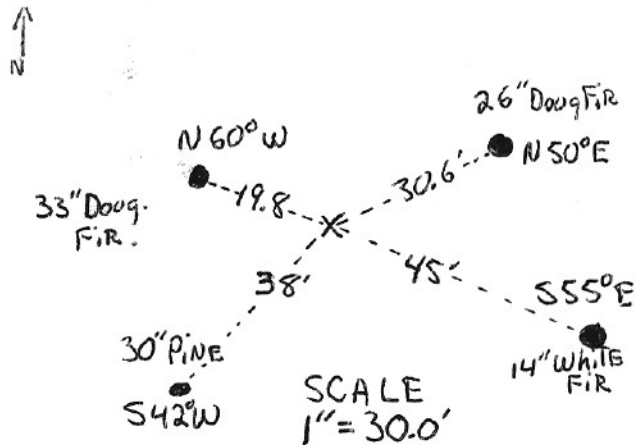 N
26" Doug FiR
N 60° W
N 50° E
30.6'
19.8
33" Doug.
FiR.
38'
45'
S55° E
30" PiNE
14" WhiTE
FiR
S42° W
SCALE
1" = 30.0'